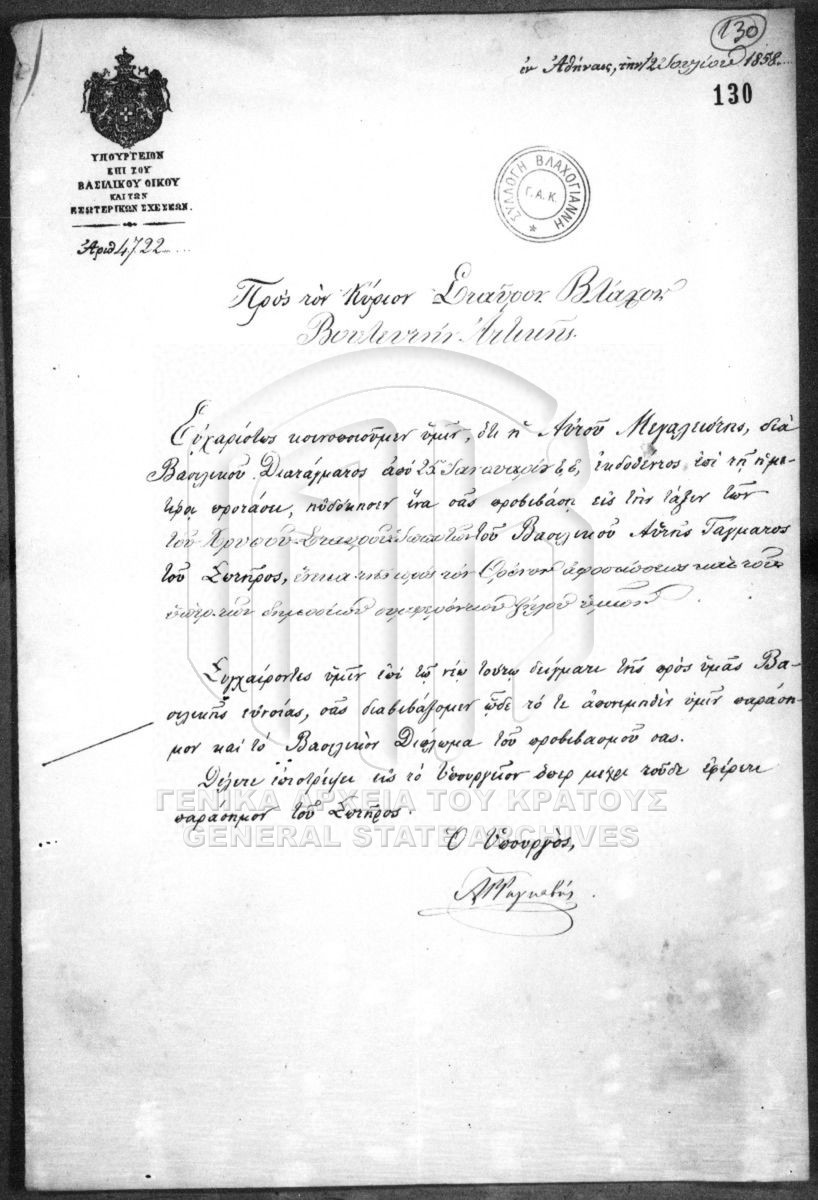 130
ἐν Ἀθήναις, τὴν 12 Ἰουλίου 1858
130
ΥΠΟΥΡΓΕΙΟΝ
ΕΠΙ ΤΟΥ
ΒΑΣΙΛΙΚΟΥ ΟΙΚΟΥ
ΚΑΙ ΤΩΝ
ΕΞΩΤΕΡΙΚΩΝ ΣΧΕΣΕΩΝ.
Ἀριθ 4722
ΣΥΛΛΟΓΗ ΒΛΑΧΟΓΙΑΝΝΗ
Γ.Α.Κ.
Πρὸς τὸν Κύριον Σταῦρον Βλάχον
Βουλευτὴν Ἀττικῆς.
Εὐχαρίστως κοινοποιοῦμεν ὑμῖν, ὅτι ἡ Αὐτοῦ Μεγαλειότης, διὰ
Βασιλικοῦ Διατάγματος ἀπὸ 25 Ἰανουαρίου ἐ. ἔ. ἐκδοθέντος ἐπὶ τῇ ἡμε-
τέρᾳ προτάσει, ηὐδόκησεν ἵνα σᾶς προβιβάσῃ εἰς τὴν τάξιν τῶν
τοῦ Χρυσοῦ Σταυροῦ Ἱπποτῶν τοῦ Βασιλικοῦ Αὐτῆς Τάγματος
τοῦ Σωτῆρος, ἕνεκα τῆς πρὸς τὸν Θρόνον ἀφοσιώσεως καὶ τοῦ
ὑπὲρ τῶν δημοσίων συμφερόντων ζήλου ὑμῶν.
Συγχαίροντες ὑμῖν ἐπὶ τῷ νέῳ τούτῳ δείγματι τῆς πρὸς ὑμᾶς Βα-
σιλικῆς εὐνοίας, σᾶς διαβιβάζομεν ὧδε τό τε ἀπονεμηθὲν ὑμῖν παράση-
μον καὶ τὸ Βασιλικὸν Δίπλωμα τοῦ προβιβασμοῦ σας.
Θέλετε ἐπιστρέψει εἰς τὸ Ὑπουργεῖον ὅπερ μέχρι τοῦδε ἐφέρετε
παράσημον τοῦ Σωτῆρος.
ΓΕΝΙΚΑ ΑΡΧΕΙΑ ΤΟΥ ΚΡΑΤΟΥΣ
GENERAL STATE ARCHIVES
Ὁ Ὑπουργὸς,
ΑΡ Ῥαγκαβής